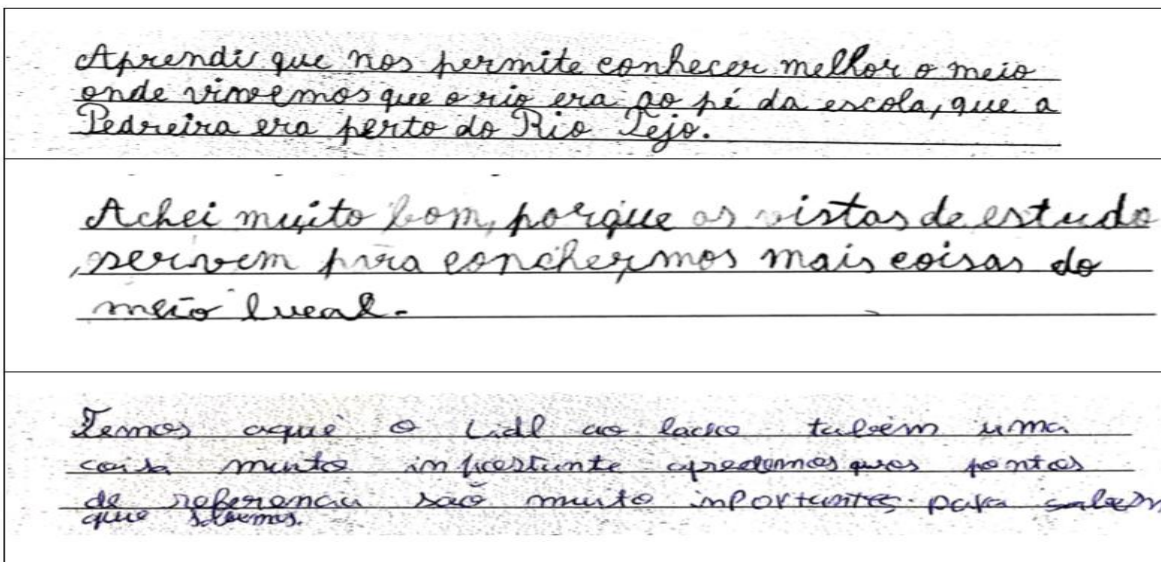 Aprendi que nos permite conhecer melhor o meio
onde vivemos que o rio era ao pé da escola, que a
Pedreira era perto do Rio Tejo.
Achei muito bom, porque as vistas de estudo
servem para concheermos mais coisas do
meio lucal.
Temos aqui o Lidl ao lado tabém uma
coisa muito importante apredemos que os pontos
de referencia são muito inportantes para
que